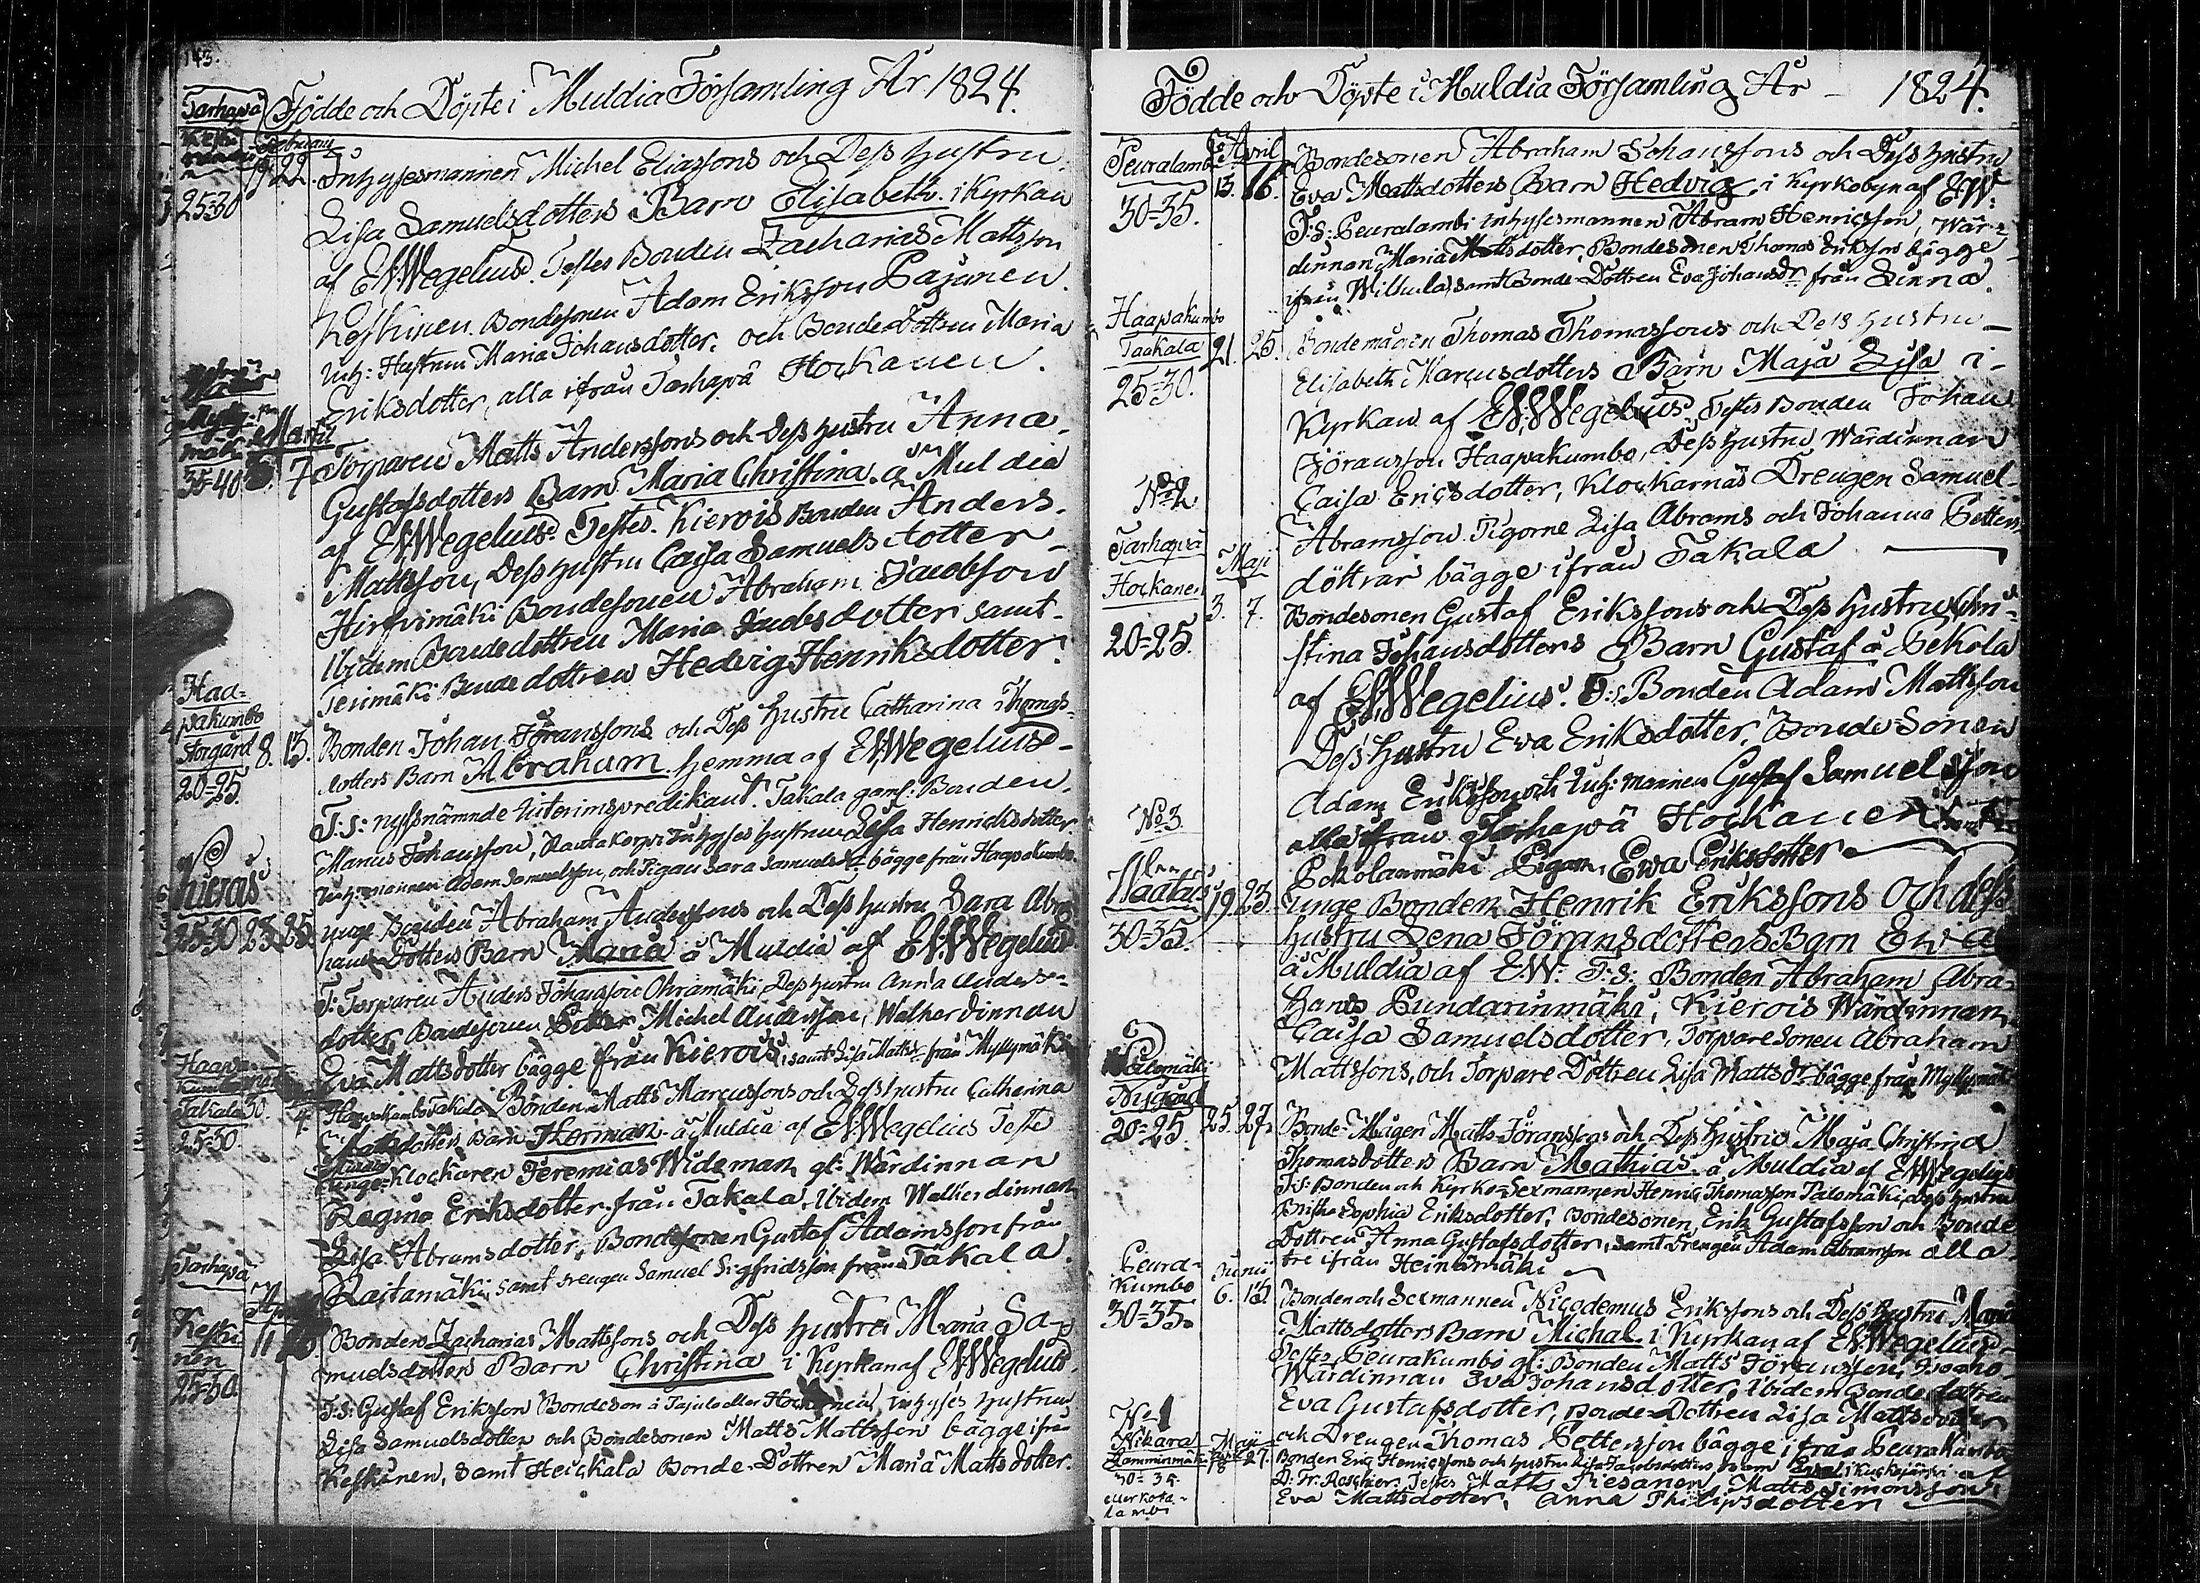 143.
Födde och Döpte i Muldia Församling År 1824.
Tarhapä
Februarii
19 22. Inhysesmannen Michel Eliassons och Dess Hustru
25=30
Lisa Samuelsdotters Barn Elisabeth. i Kyrkan
af EWWegelius. Testes Bonden Zacharias Mattsson
Keskinen. Bondesonen Adam Eriksson Pajunen.
Inh: Hustrun Maria Johansdotter. och Bonde-Dottren Maria
Eriksdotter, alla ifrån Tarhapä Hockanen.
Martii
7 Torparen Matts Anderssons och Dess Hustru Anna
35=40
Gustafsdotters Barn Maria Christina. å Muldia
af EWWegelius. Testes. Kierois Bonden Anders
Mattsson, Dess Hustru Caisa Samuelsdotter
Hirfvimäki Bondesonen Abraham Jacobsson
Ibidem Bondedottren Maria Jacobsdotter samt
Bondedottren Hedvig Henriksdotter.
Haapakumbo
Storgård
8. 13. Bonden Johan Jöranssons och Dess Hustru Catharina Thomas-
20=25.
dotters Barn Abraham. hemma af EWWegelius
T:s: nyssnämnde Interimspredikant. Takala gaml: Bonden.
Manus Johansson, Rautakorpi Inhyses Hustrun Lisa Henricksdotter
Inh: mannen Adam Samuelsson, och Pigan Sara Samuelsdr bägge från Haapakumbo.
25=30 23. 25. unge Bonden Abraham Anderssons och Dess Hustru Sara Abra-
hams Dotters Barn Maria å Muldia af EWWegelius
T: Torparen Anders Johansson Ohramäki, Dess Hustru Anna Anders-
dotter, Bondesonen Michel Andersson, Walkerdinnan
Eva Mattsdotter bägge från Kierois, samt Lisa Mattsdr från Myllymäki
Haapakumbo
Takala 30. 4. Haapakumbo Takala Bonden Matts Marcussons och Dess Hustru Catharina
25=30.
Mattsdotters Barn Herman å Muldia af EWWegelius Teste
Klockaren Jeremias Wideman, gl: Wärdinnan
Regina Eriksdotter från Takala, Ibidem Walkerdinnan
Lisa Abramsdotter, Bondesonen Gustaf Adamsson från
Raitamäki, samt Drengen Samuel Sigfridsson från Takala.
Tarhapä
Keskinen
11 Bonden Zacharias Mattssons och Dess Hustru Maria Sa-
25=30.
muelsdotters Barn Christina i Kyrkan af EWWegelius.
T:s: Gustaf Eriksson Bondeson å Tajula eller Hockanen, Inhyses Hustrun
Lisa Samuelsdotter och Bondesonen Matts Mattsson bägge ifrån
Keskinen, samt Heickala Bonde-Dottren Maria Mattsdotter.
Födde och Döpte i Muldia Församling År – 1824.
April
Peuralamb
13. 16. Bondesonen Abraham Johanssons och Dess Hustru
30=35.
Eva Mattsdotters Barn Hedvig, i Kyrkobyn af EW:
T:s: Peuralambi inhysesmannen Abram Henricsson, Wär-
dinnan Maria Mattsdotter, Bondesonen Thomas Eriksson bägge
ifrån Wilhula, samt Bonde-Dottren Eva Johansdr från Linna.
Haapakumbo
Taakala 21. 25. Bondemågen Thomas Thomassons och Dess Hustru
25=30.
Elisabeth Marcusdotters Barn Maja Lisa i
Kyrkan af EWWegelius. Testes Bonden Johan
Jöransson Haapakumbo, Dess Hustru Wärdinnan
Caisa Ericsdotter, Klockarnäs Drengen Samuel
Abramsson. Pigorne Lisa Abrams och Johanna Petters
döttrar bägge ifrån Takala
No 2
Tarhapä
Maji
Hockanen
3. 7. Bondesonen Gustaf Erikssons och Dess Hustru Chri-
20=25.
stina Johansdotters Barn Gustaf å Pekola
af EWWegelius. T:s: Bonden Adam Mattsson
Dess Hustru Eva Eriksdotter, Bonde-Sonen
Adam Eriksson och Inh: mannen Gustaf Samuelsson
alla ifrån Tarhapä Hockanen samt
Pekolanmäki Pigan, Ewa Eriksdotter
No 3
19 23. unge Bonden Henrik Erikssons och dess
30=35.
Hustru Lena Jöransdotters Barn Ewa
å Muldia af EW: T:s: Bonden Abraham Abra-
hams Pundarinmäki, Kierois Wärdinnan
Caisa Samuelsdotter, Torparesonen Abraham
Mattssons, och Torpare Dottren Lisa Mattsdr bägge från Myllymäki
Nygård
20=25. 25. 27. Bonde-Mågen Matts Jöranssons och Dess Hustru Maja Christina
Thomasdotters Barn Mathias å Muldia af EWWegelius
T:s: Bonden och Kyrko-Sexmannen Henric Thomasson Palomäki, Dess Hustru
Briska Sophia Eriksdotter, Bondesonen, Erik Gustafsson och Bonde
Dottren Anna Gustafsdotter, samt Drengen Adam Abramson alla
tre ifrån Heinämäki
Peura-
kumbo
Junii
6. 13. Bonden och Sexmannen Nicodemus Erikssons och Dess Hustru Maria
30=35.
Mattsdotters Barn Michal i Kyrkan af EWWegelius
Testes Peurakumbo gl: Bonden Matts Jöransson,
Wärdinnan Eva Johansdotter, Ibidem Bonde dottren
Eva Gustafsdotter, Bonde-Dottren Lisa Mattsdotter
och Drengen Thomas Pettersson bägge ifrån Peurakumbo
No 1
Nikara
27. Bonden Eric Henricssons och Hustru Lisa Jacobsdotters Barn Eva i Kuckojärvi af
30=35.
eller Kota-
lambi
D: Fr: Roschier. Testes Matts Piesanen, Matts Simonsson,
Eva Mattsdotter, Anna Philipsdotter